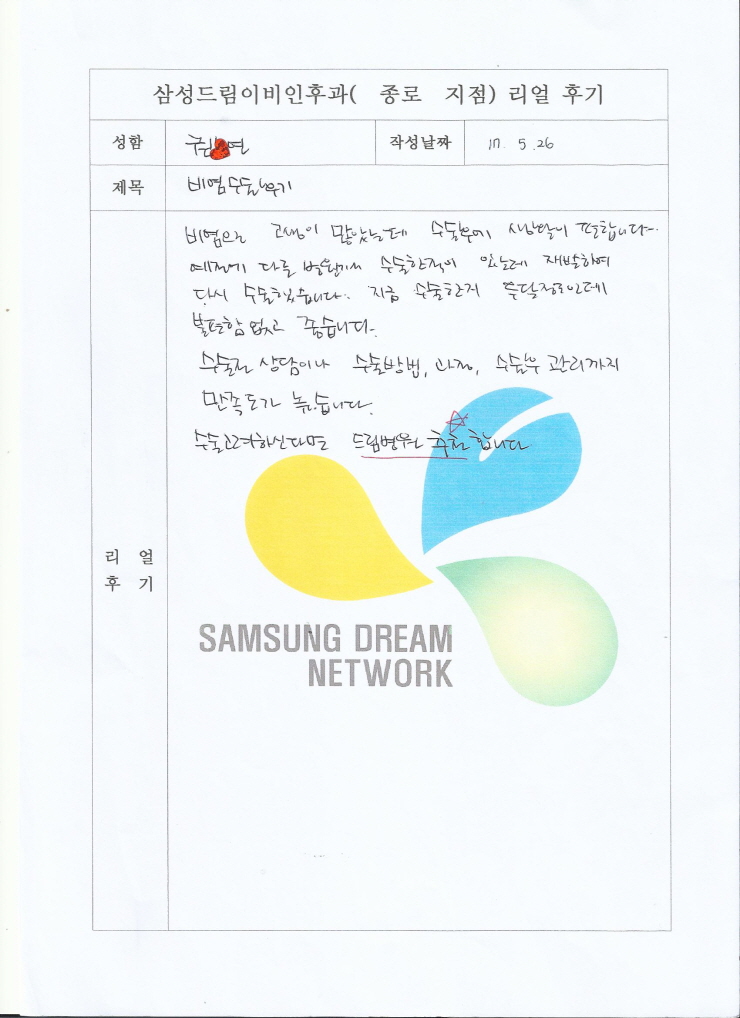 삼성드림이비인후과( 종로 지점) 리얼 후기
성함 권 연 작성날짜 17. 5. 26
제목 비염수술후기
비염으로 고생이 많았는데 수술후에 생활이 편합니다.
예전에 다른 병원에서 수술한적이 있는데 재발하여
다시 수술했습니다. 지금 수술한지 두달정도인데
불편함 없고 좋습니다.
수술전 상담이나 수술방법, 과정, 수술후 관리까지
만족도가 높습니다.
수술고려하신다면 드림병원 추천 합니다
리 얼
후 기
SAMSUNG DREAM
NETWORK